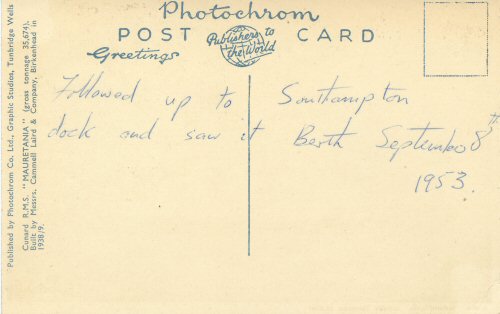 Photochrom
POST CARD
Publishers to
the World
Greetings
Followed up to Southampton
dock and saw it Berth September 8th
1953.
Published by Photochrom Co. Ltd., Graphic Studios, Tunbridge Wells
Cunard R.M.S. "MAURETANIA" (gross tonnage 35,674).
Built by Messrs. Cammell Laird & Company, Birkenhead in
1938/9.